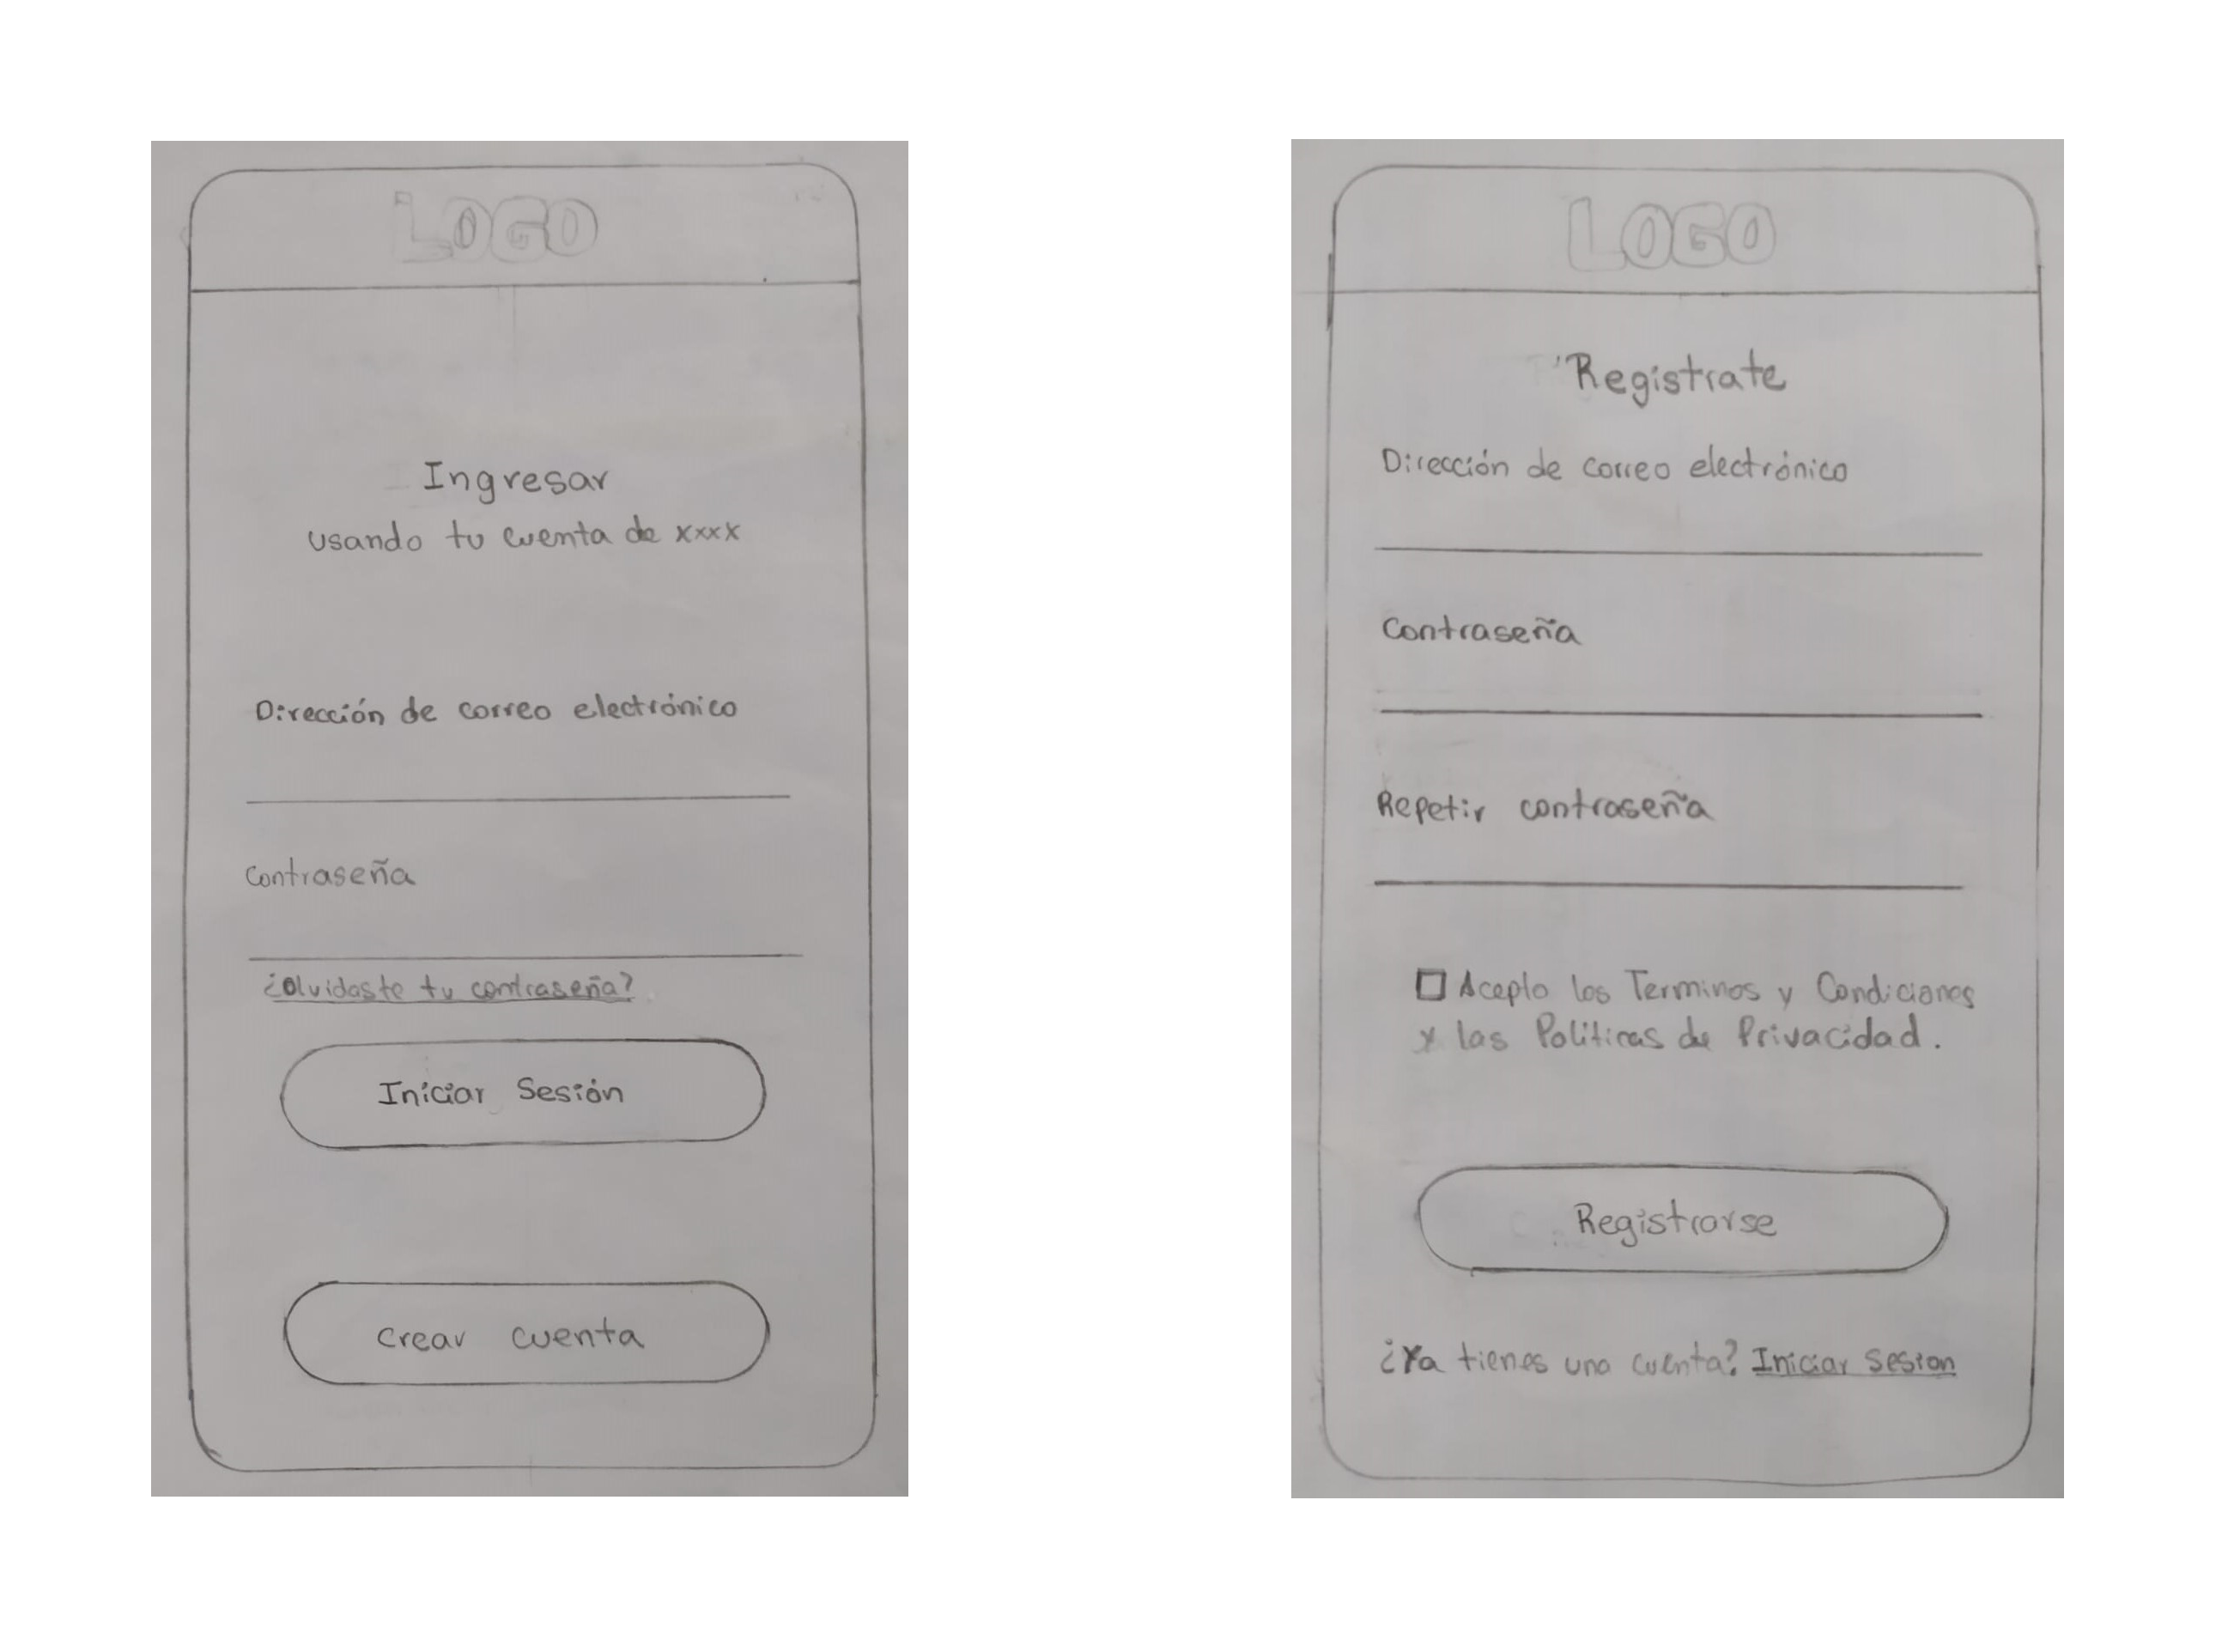 LOGO
Ingresar
usando tu cuenta de xxxx
Dirección de correo electrónico
Contraseña
¿Olvidaste tu contraseña?
Iniciar Sesión
crear cuenta
LOGO
Registrate
Dirección de correo electrónico
Contraseña
Repetir contraseña
Acepto los Terminos y Condiciones
y las Politicas de Privacidad.
Registrarse
¿Ya tienes una cuenta? Iniciar sesion